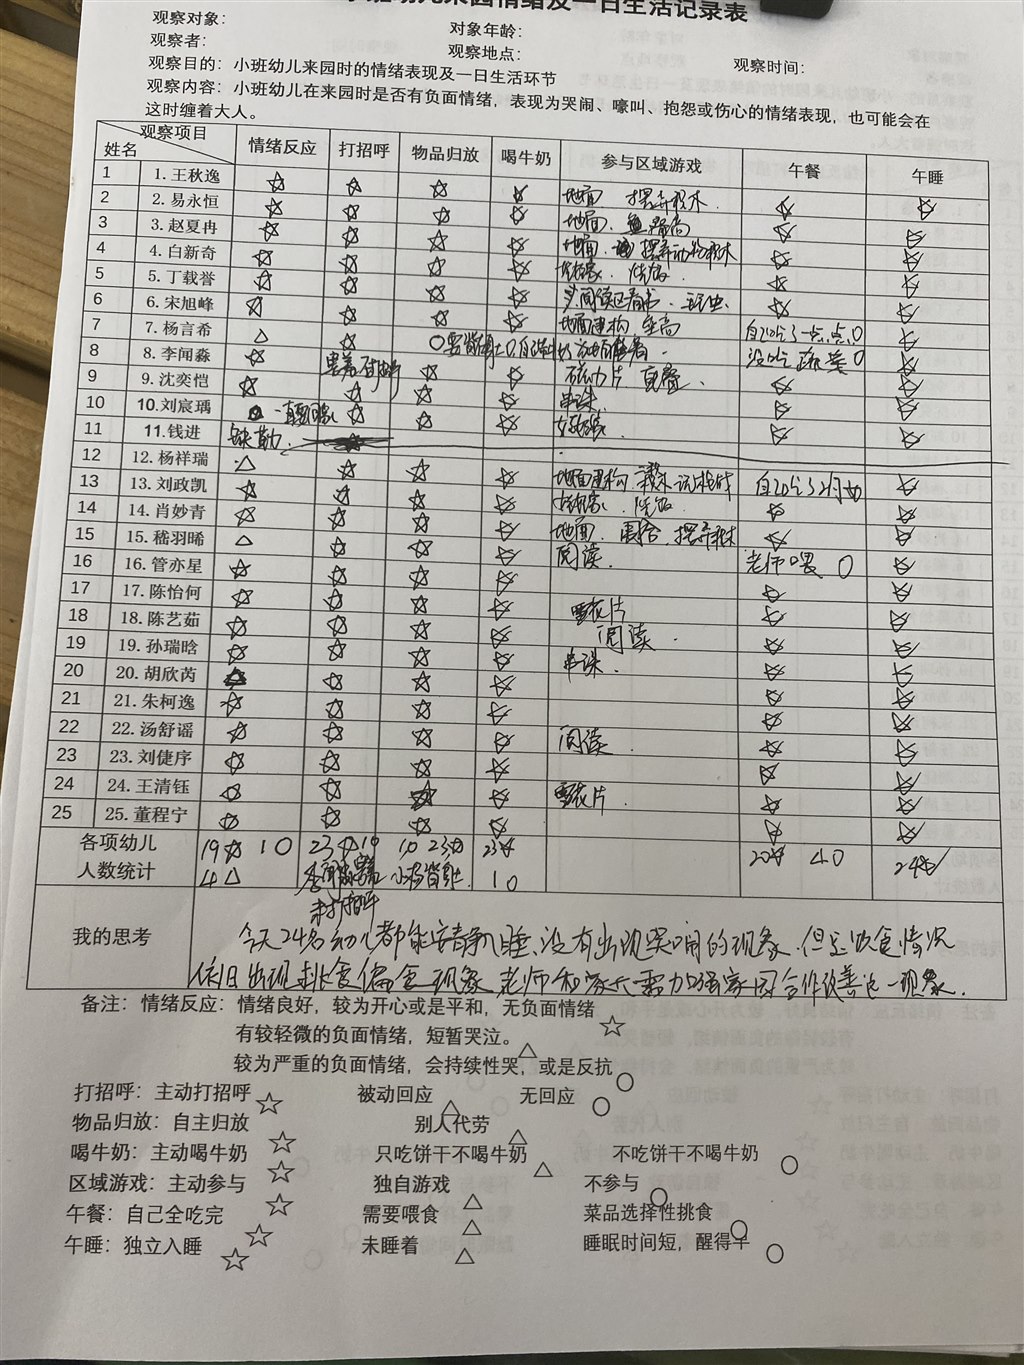 来园情绪及一日生活记录表
观察对象： 对象年龄：
观察者： 观察地点： 观察时间：
观察目的：小班幼儿来园时的情绪表现及一日生活环节
观察内容：小班幼儿在来园时是否有负面情绪，表现为哭闹、嚎叫、抱怨或伤心的情绪表现，也可能会在
这时缠着大人。
观察项目 姓名 情绪反应 打招呼 物品归放 喝牛奶 参与区域游戏 午餐 午睡
1 1. 王秋逸 ☆ ☆ ☆ ☆ 地面 摆弄积木. ☆ ☆
2 2. 易永恒 ☆ ☆ ☆ ☆ 地面. ☆ ☆
3 3. 赵夏冉 ☆ ☆ ☆ ☆ 地面. 摆弄动物积木 ☆ ☆
4 4. 白新奇 ☆ ☆ ☆ ☆ 烧饭. ☆ ☆
5 5. 丁载誉 ☆ ☆ ☆ ☆ 阅读区看书. ☆ ☆
6 6. 宋旭峰 ☆ ☆ ☆ ☆ 地面建构 自己吃了一点点 ○ ☆
7 7. 杨言希 △ ☆ ○ 没吃蔬菜 ○ ☆
8 8. 李闻淼 ☆ 害羞 ☆ ☆ 磁力片 ☆ ☆
9 9. 沈奕恺 ☆ ☆ ☆ ☆ 串珠. ☆ ☆
10 10. 刘宸瑀 一直要回家 ☆ ☆ ☆ ☆ ☆
11 11. 钱进 缺勤.
12 12. 杨祥瑞 △ ☆ ☆ ☆ 地面建构. ☆
13 13. 刘政凯 ☆ ☆ ☆ ☆ 烧饭. ☆ ☆
14 14. 肖妙青 ☆ ☆ ☆ ☆ 地面. 摆弄积木 ☆ ☆
15 15. 嵇羽晞 △ ☆ ☆ ☆ 阅读. 老师喂 ○ ☆
16 16. 管亦星 ☆ ☆ ☆ ☆ ☆ ☆
17 17. 陈怡何 ☆ ☆ ☆ ☆ 雪花片 ☆ ☆
18 18. 陈艺茹 ☆ ☆ ☆ ☆ 阅读. ☆ ☆
19 19. 孙瑞晗 ☆ ☆ ☆ ☆ 串珠. ☆ ☆
20 20. 胡欣芮 △ ☆ ☆ ☆ ☆ ☆
21 21. 朱柯逸 ☆ ☆ ☆ ☆ ☆ ☆
22 22. 汤舒谣 ☆ ☆ ☆ ☆ 阅读. ☆ ☆
23 23. 刘倢序 ☆ ☆ ☆ ☆ ☆ ☆
24 24. 王清钰 ☆ ☆ ☆ ☆ 雪花片. ☆ ☆
25 25. 董程宁 ☆ ☆ ☆ ☆ ☆ ☆
各项幼儿 19☆ 1○ 23☆ 1○ 1○ 23☆ 23☆ 20☆ 4○ 24☆
人数统计 4△ 李闻淼害羞 1○
未打招呼
我的思考
今天24名幼儿都能安静入睡,没有出现哭闹的现象.但是饮食情况
依旧出现挑食偏食现象.老师和家长需加强家园合作改善这一现象.
备注：情绪反应：情绪良好，较为开心或是平和，无负面情绪 ☆
有较轻微的负面情绪，短暂哭泣。 △
较为严重的负面情绪，会持续性哭，或是反抗 ○
打招呼：主动打招呼 ☆ 被动回应 △ 无回应 ○
物品归放：自主归放 ☆ 别人代劳 △
喝牛奶：主动喝牛奶 ☆ 只吃饼干不喝牛奶 △ 不吃饼干不喝牛奶 ○
区域游戏：主动参与 ☆ 独自游戏 △ 不参与 ○
午餐：自己全吃完 ☆ 需要喂食 △ 菜品选择性挑食 ○
午睡：独立入睡 ☆ 未睡着 △ 睡眠时间短，醒得早 ○